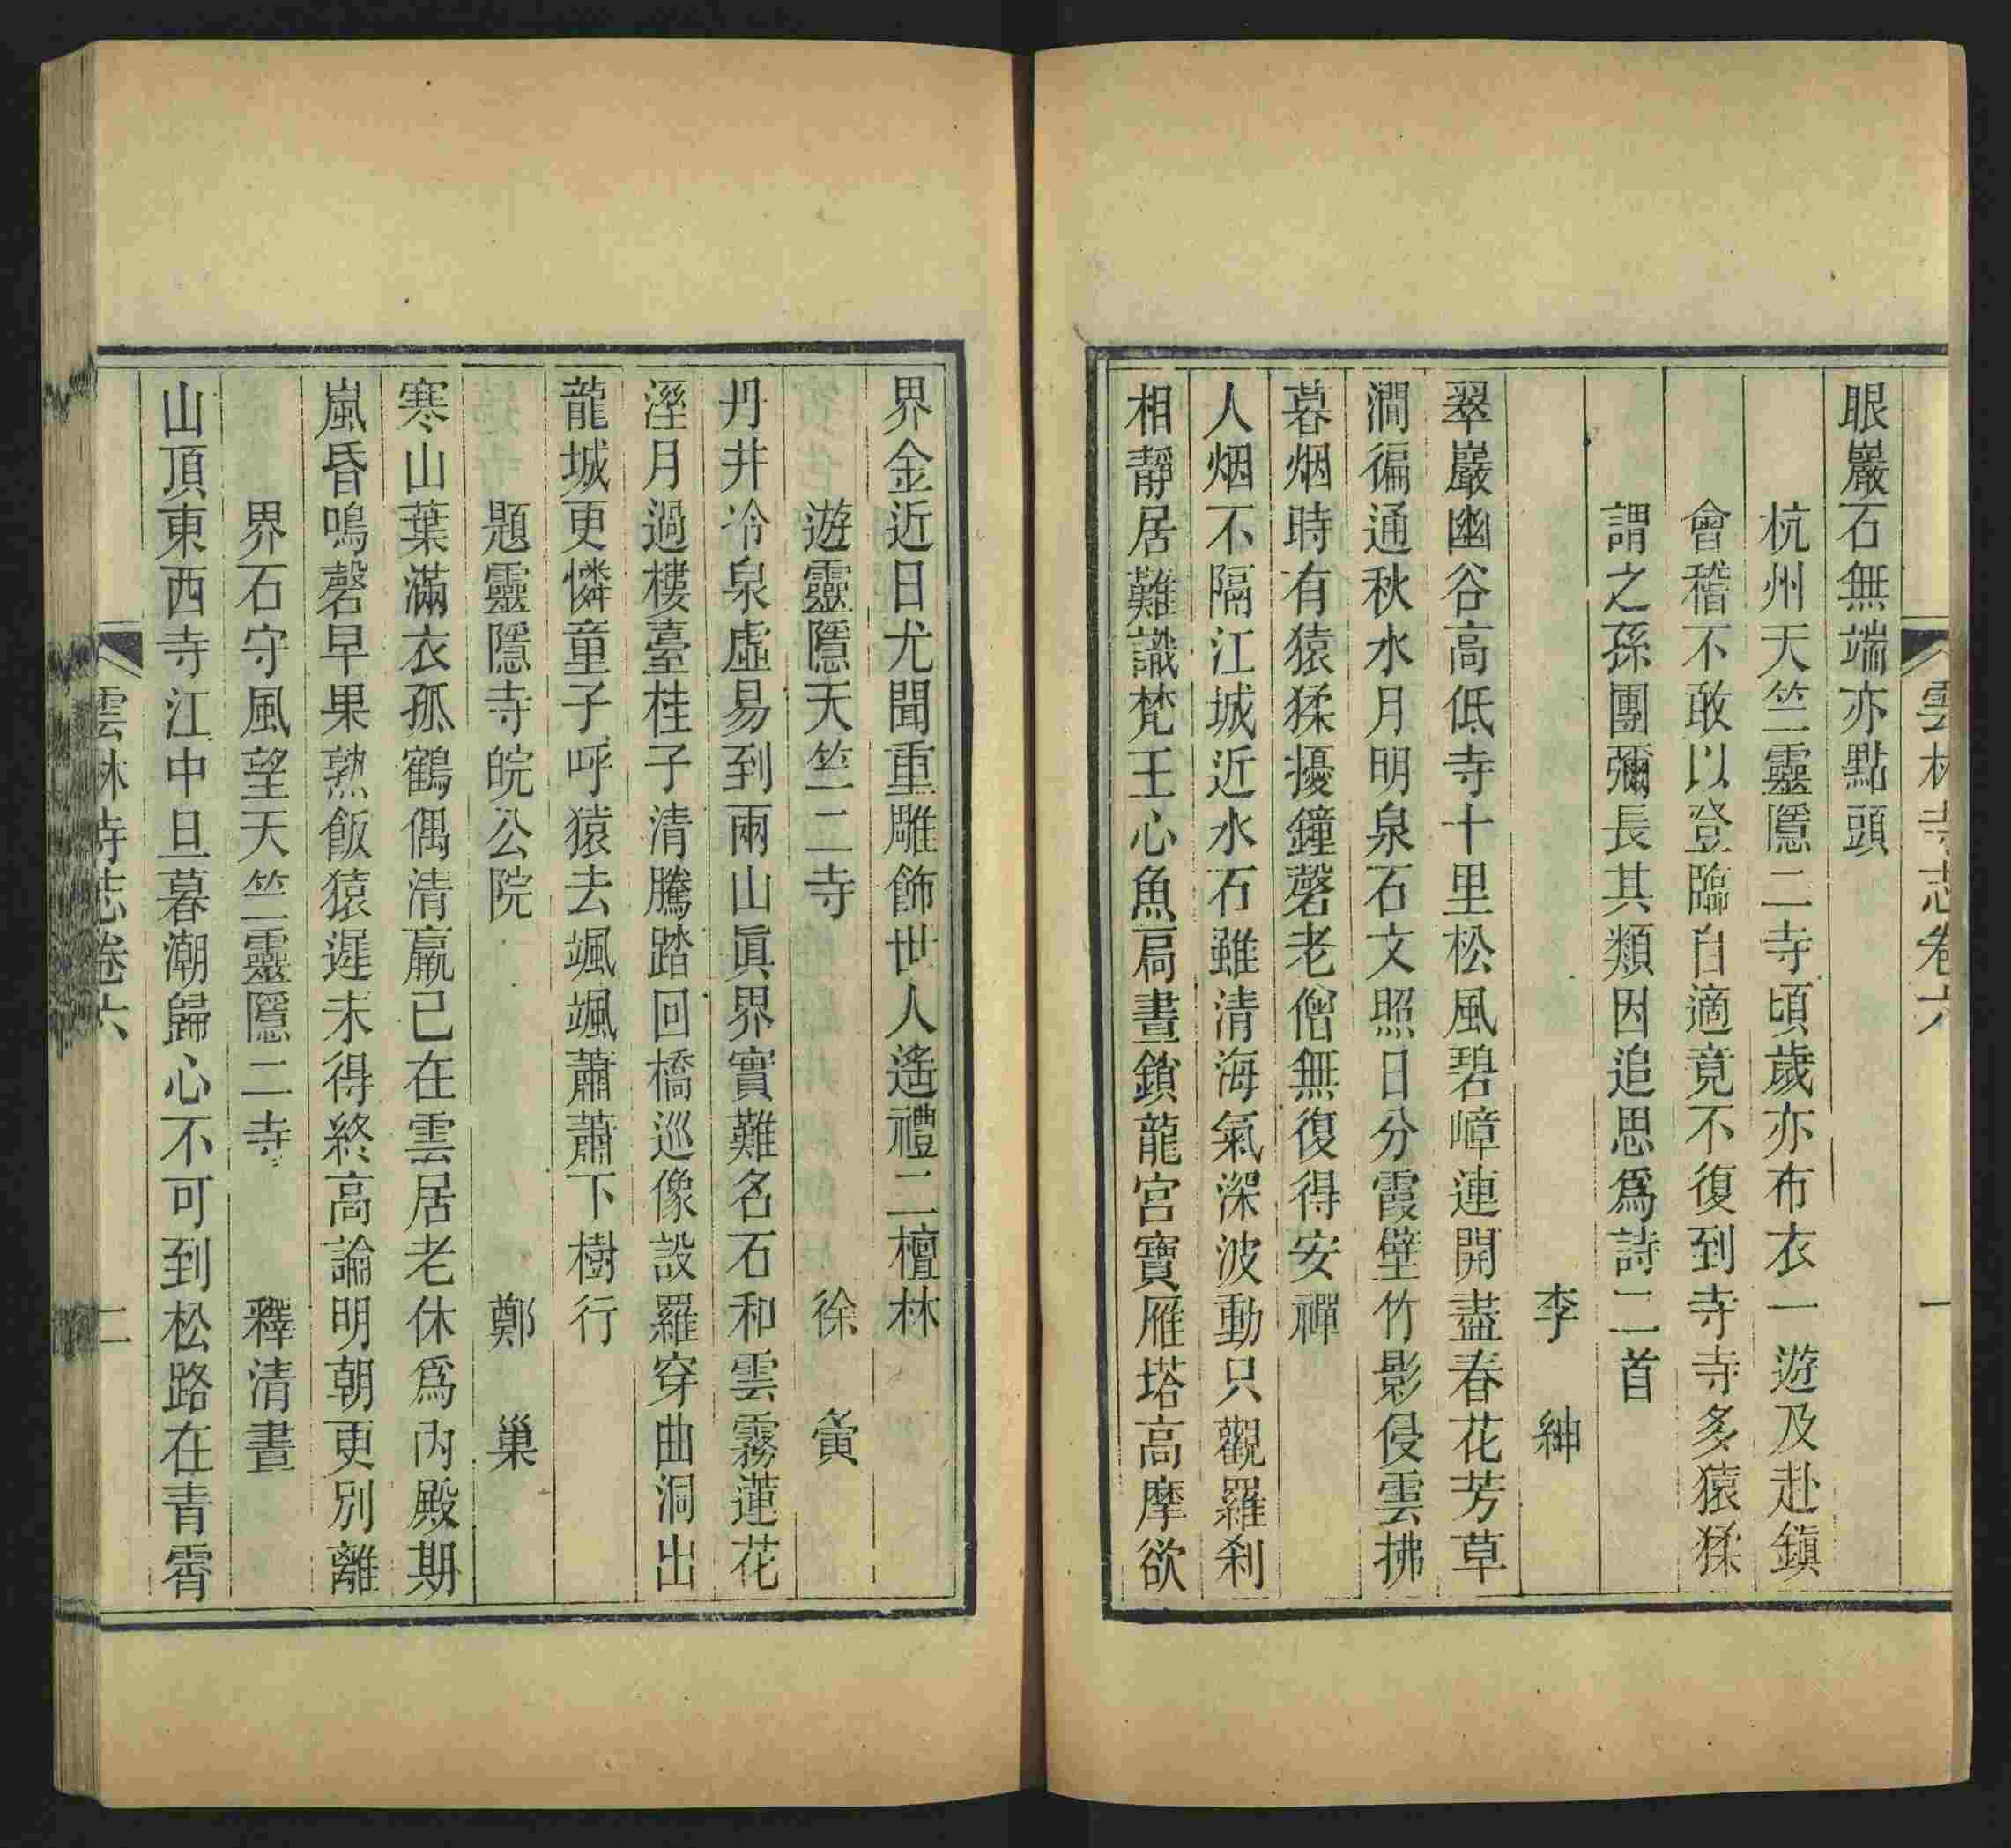 雲林寺志卷六 一
眼巖石無端亦點頭
杭州天竺靈隱二寺頃歲亦布衣一遊及赴鎭
會稽不敢以登臨自適竟不復到寺寺多猿猱
謂之孫團彌長其類因追思爲詩二首
李紳
翠巖幽谷高低寺十里松風碧嶂連開盡春花芳草
澗徧通秋水月明泉石文照日分霞壁竹影侵雲拂
暮烟時有猿猱擾鐘磬老僧無復得安禪
人烟不隔江城近水石雖清海氣深波動只觀羅刹
相靜居難識梵王心魚扃晝鎖龍宮寶雁塔高摩欲
界金近日尤聞重雕飾世人遙禮二檀林
遊靈隱天竺二寺 徐夤
丹井冷泉虛易到兩山眞界實難名石和雲霧蓮花
溼月過樓臺桂子清騰踏回橋巡像設羅穿曲洞出
龍城更憐童子呼猿去颯颯蕭蕭下樹行
題靈隱寺皖公院 鄭巢
寒山葉滿衣孤鶴偶清羸已在雲居老休爲內殿期
嵐昏鳴磬早果熟飯猿遲未得終高論明朝更別離
界石守風望天竺靈隱二寺 釋清晝
山頂東西寺江中旦暮潮歸心不可到松路在青霄
雲林寺志卷六 二